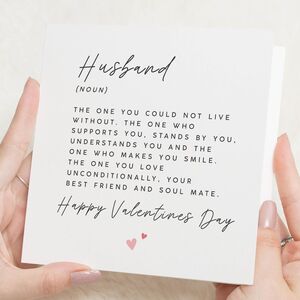 Husband
(NOUN)
THE ONE YOU COULD NOT LIVE
WITHOUT. THE ONE WHO
SUPPORTS YOU, STANDS BY YOU,
UNDERSTANDS YOU AND THE
ONE WHO MAKES YOU SMILE.
THE ONE YOU LOVE
UNCONDITIONALLY, YOUR
BEST FRIEND AND SOUL MATE.
Happy Valentines Day